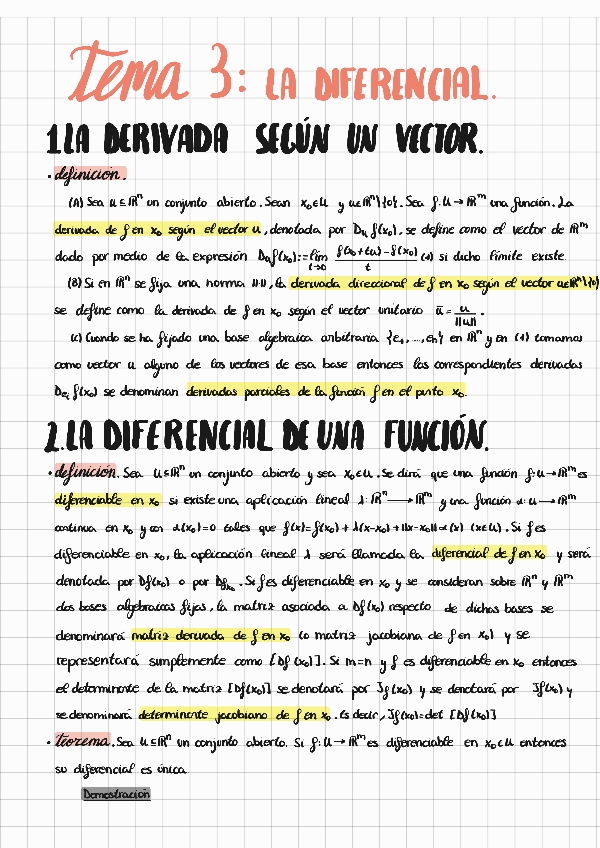 Tema 3: LA DIFERENCIAL.
1.LA DERIVADA SEGÚN UN VECTOR.
• definición.
(A) Sea U⊆ℝⁿ un conjunto abierto. Sean x₀∈U y u∈ℝⁿ\{0}. Sea f:U→ℝᵐ una función. La
derivada de f en x₀ según el vector u, denotada por Dᵤf(x₀), se define como el vector de ℝᵐ
dado por medio de la expresión Dᵤf(x₀):=lím_{t→0} (f(x₀+tu)-f(x₀))/t (1) si dicho límite existe.
(B) Si en ℝⁿ se fija una norma ||·||, la derivada direccional de f en x₀ según el vector u∈ℝⁿ\{0}
se define como la derivada de f en x₀ según el vector unitario ū = u/||u||.
(C) Cuando se ha fijado una base algebraica arbitraria {e₁,...,eₙ} en ℝⁿ y en (1) tomamos
como vector u alguno de los vectores de esa base entonces las correspondientes derivadas
D_{eᵢ}f(x₀) se denominan derivadas parciales de la función f en el punto x₀.
2.LA DIFERENCIAL DE UNA FUNCIÓN.
• definición. Sea U⊆ℝⁿ un conjunto abierto y sea x₀∈U. Se dirá que una función f:U→ℝᵐ es
diferenciable en x₀ si existe una aplicación lineal λ:ℝⁿ→ℝᵐ y una función α:U→ℝᵐ
continua en x₀ y con α(x₀)=0 tales que f(x)=f(x₀)+λ(x-x₀)+||x-x₀||α(x) (x∈U). Si f es
diferenciable en x₀, la aplicación lineal λ será llamada la diferencial de f en x₀ y será
denotada por Df(x₀) o por Df_{x₀}. Si f es diferenciable en x₀ y se consideran sobre ℝⁿ y ℝᵐ
dos bases algebraicas fijas, la matriz asociada a Df(x₀) respecto de dichas bases se
denominará matriz derivada de f en x₀ (o matriz jacobiana de f en x₀) y se
representará simplemente como [Df(x₀)]. Si m=n y f es diferenciable en x₀ entonces
el determinante de la matriz [Df(x₀)] se denotará por Jf(x₀) y se denotará por Jf(x₀) y
se denominará determinante jacobiano de f en x₀. Es decir, Jf(x₀)=det [Df(x₀)]
• teorema. Sea U⊆ℝⁿ un conjunto abierto. Si f:U→ℝᵐ es diferenciable en x₀∈U entonces
su diferencial es única.
Demostración